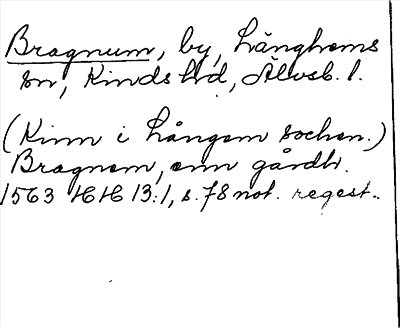 Bragnum, by, Långhems
sn, Kinds hd, Älvsb. l.
(Kinn i Långem sochen.)
Bragnem, enn gårdh.
1563 HH 13:1, s. 78 not. regest..